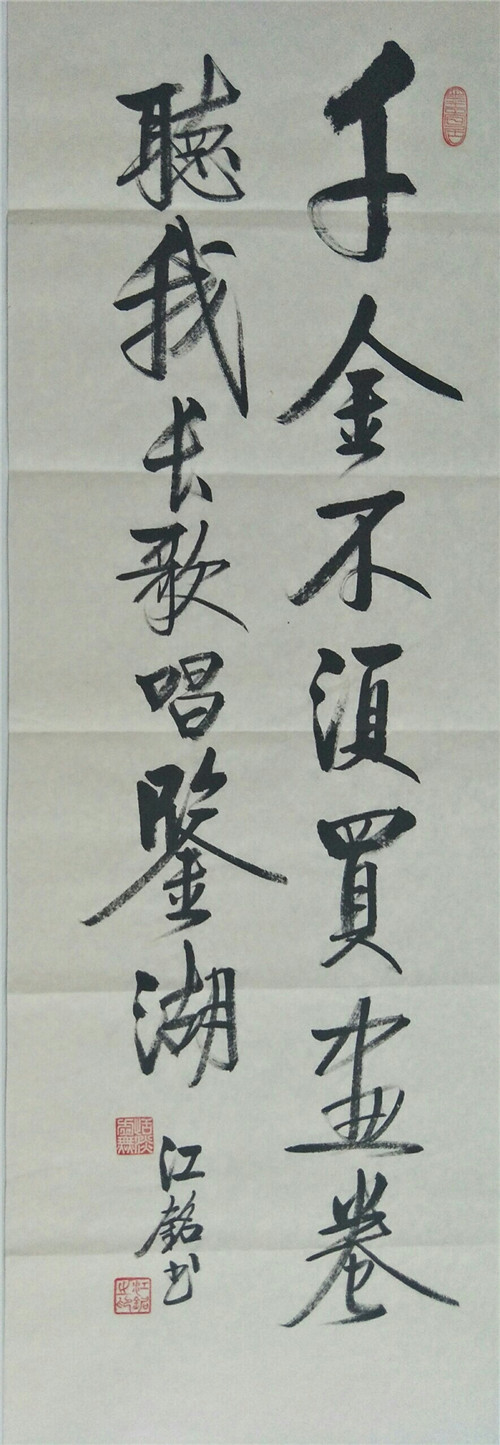 千金不須買畫卷
聽我長歌唱鑒湖
江銘书